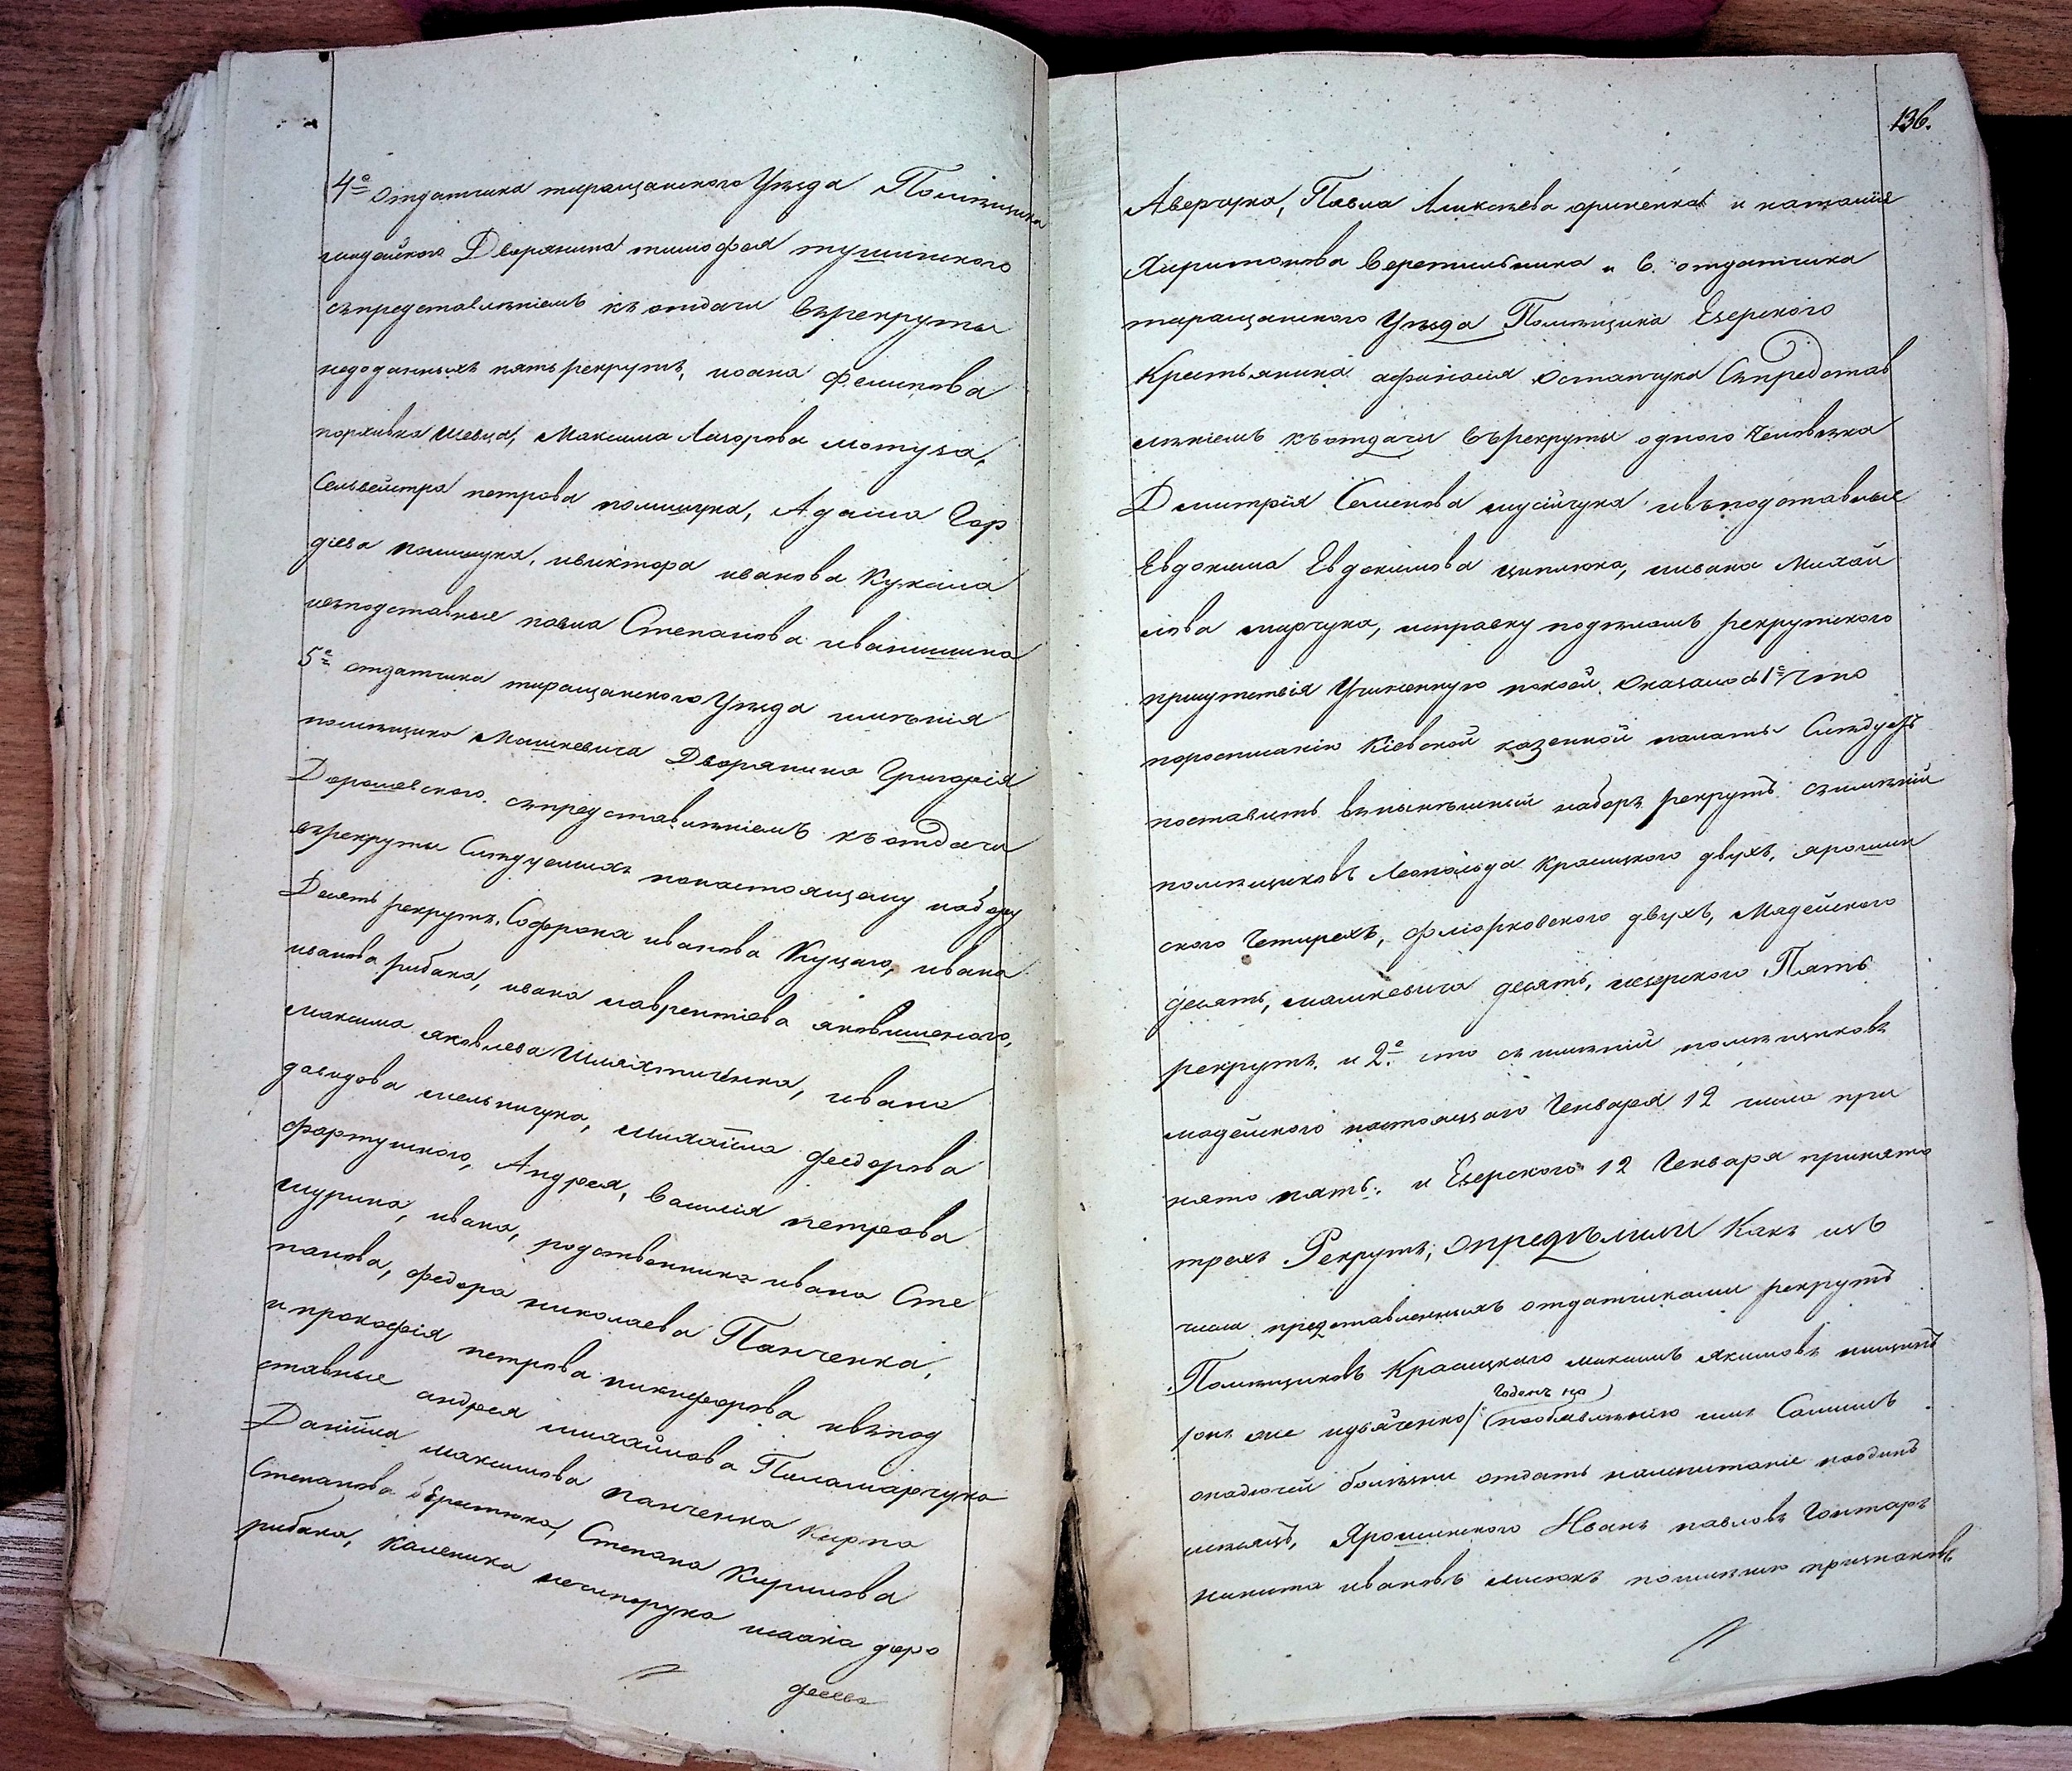 4е отдатчика таращанского Уѣзда Помѣщика
мадейского Дворянина тимофея тушинского
съпредставлѣніемъ къ отдачи Върекруты
недоданныхъ пять рекрутъ, иоана филипова
порхивка шевца, Максима Лазорова мотуза,
Сельвейстра петрова полищука, Адама Гор
дѣева полищука, ивиктора иванова Кужела
ивподставные павла Степанова иванишина
5е отдатчика таращанского Уѣзда имѣнія
помѣщика Машкевича Дворянина Григорія
Дорошевского съпредставлѣніемъ къ отдачи
върекруты Слѣдуемихъ понастоящему набору
Десять рекрутъ, Софрона иванова Куцаго, ивана
иванова рибака, ивана лаврентіева яновшенсого,
максима яковлева Шляхтиченка, ивана
давидова мельничука, михайла феодорова
фартушного, Андрея, василія петрова
щурика, ивана, родственника ивана Сте
панова, федора николаева Панченка,
и прокофія петрова никифорова ивъпод
ставные андрея михайлова Паламарчука
Даніила максимова панченка Карпа
Степанова Степана Кирилова
рибака, каленика нечипорука исаака доро
феева
136.
Аверчука, Павла Аликсѣева ориненка и натанія
Харитонова Веретильника и 6. отдатчика
таращанского Уѣзда Помѣщика Езерского
Крестьянина афанасія Остапчука Съпредстав
лѣніемъ къотдачи Върекруты одного Человѣка
Дмитрія Семенова мусійчука ивъподставные
Евдокима Евдокимова циплюка, ишвана Михай
лова марчука, исправку подѣламъ рекрутского
присутствія Учиненную поконе Оказалось 1е Что
поросписанію Кіевской казенной палаты Слѣдуетъ
поставить вънынѣшній наборъ рекрутъ съимѣній
помѣщиковъ Леопольда Красицкого двухъ, ярошин
ского Четирехъ, флиорковского двухъ, Мадейского
десять, машкевича десять, иезерского Пять
рекрутъ, и 2е что съ имѣній помѣщиковъ
мадейского настоящаго Генваря 12 числа при
нято пять, и Езерского 12 Генваря принято
трехъ Рекрутъ, опредѣлили Какъ изъ
числа представленныхъ отдатчиками рекрутъ
Помѣщиковъ Красицкого максимъ якимовъ нищинъ
/онъ же идьяченко/ Годенъ но
пообъявлѣнію имъ Самимъ
падючей болѣзни отдать наиспитаніе наодинъ
мѣсяцъ, Ярошинского Иванъ павловъ Гонтаръ
никита ивановъ мисюкъ поимѣнію признаковъ